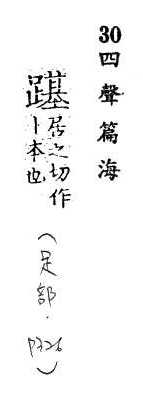 30四聲篇海
居之切作
卜本也
(足部.